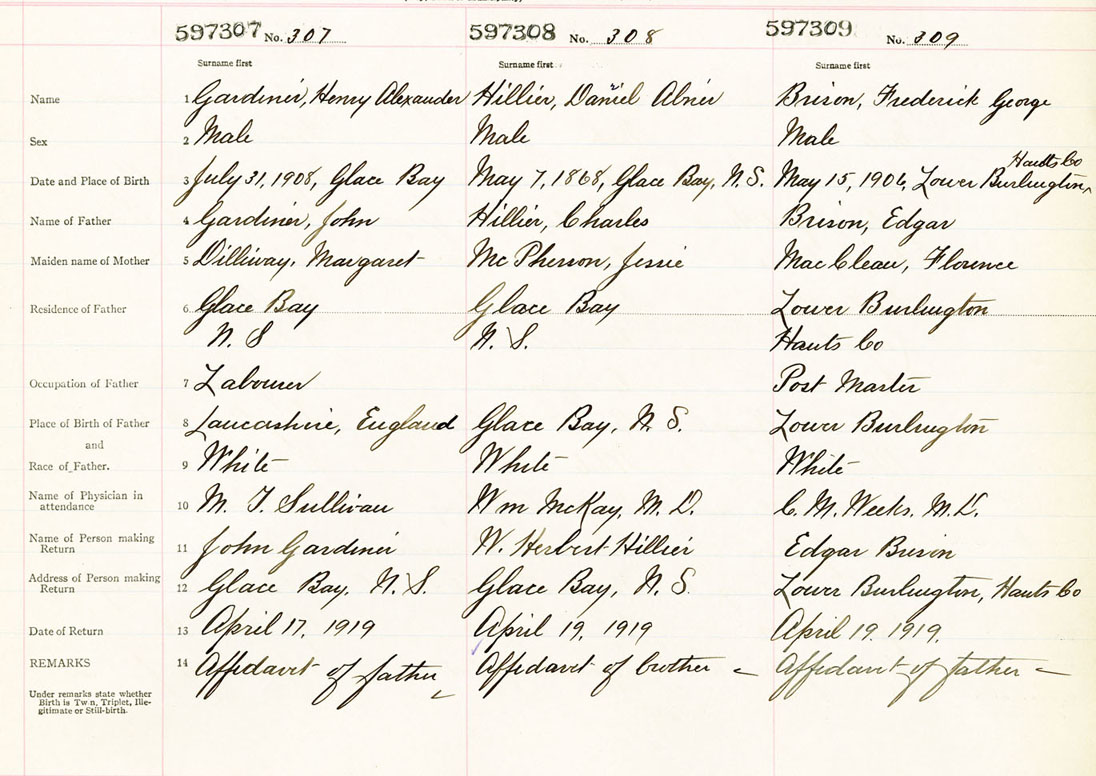 597307 No. 307 597308 No. 308 597309 No. 309
Surname first Surname first Surname first
Name 1 Gardiner, Henry Alexander Hillier, Daniel Abner Brison, Frederick George
Sex 2 Male Male Male
Hants Co
Date and Place of Birth 3 July 31, 1908, Glace Bay May 7, 1868, Glace Bay, N.S. May 15, 1906, Lower Burlington
Name of Father 4 Gardiner, John Hillier, Charles Brison, Edgar
Maiden name of Mother 5 Dillivay, Margaret McPherson, Jessie MacClean, Florence
Residence of Father 6 Glace Bay Glace Bay Lower Burlington
N. S N. S. Hants Co
Occupation of Father 7 Labourer Post Master
Place of Birth of Father 8 Lancashire, England Glace Bay, N. S. Lower Burlington
and
Race of Father. 9 White White White
Name of Physician in
attendance 10 M. T. Sullivan Wm McKay, M. D. C. M. Weeks, M.D.
Name of Person making
Return 11 John Gardiner W. Herbert Hillier Edgar Brison
Address of Person making
Return 12 Glace Bay, N. S. Glace Bay, N. S. Lower Burlington, Hants Co
Date of Return 13 April 17, 1919 April 19, 1919 April 19, 1919.
REMARKS 14 Affidavit of father Affidavit of brother Affidavit of father
Under remarks state whether
Birth is Twn, Triplet, Ille-
gitimate or Still-birth.